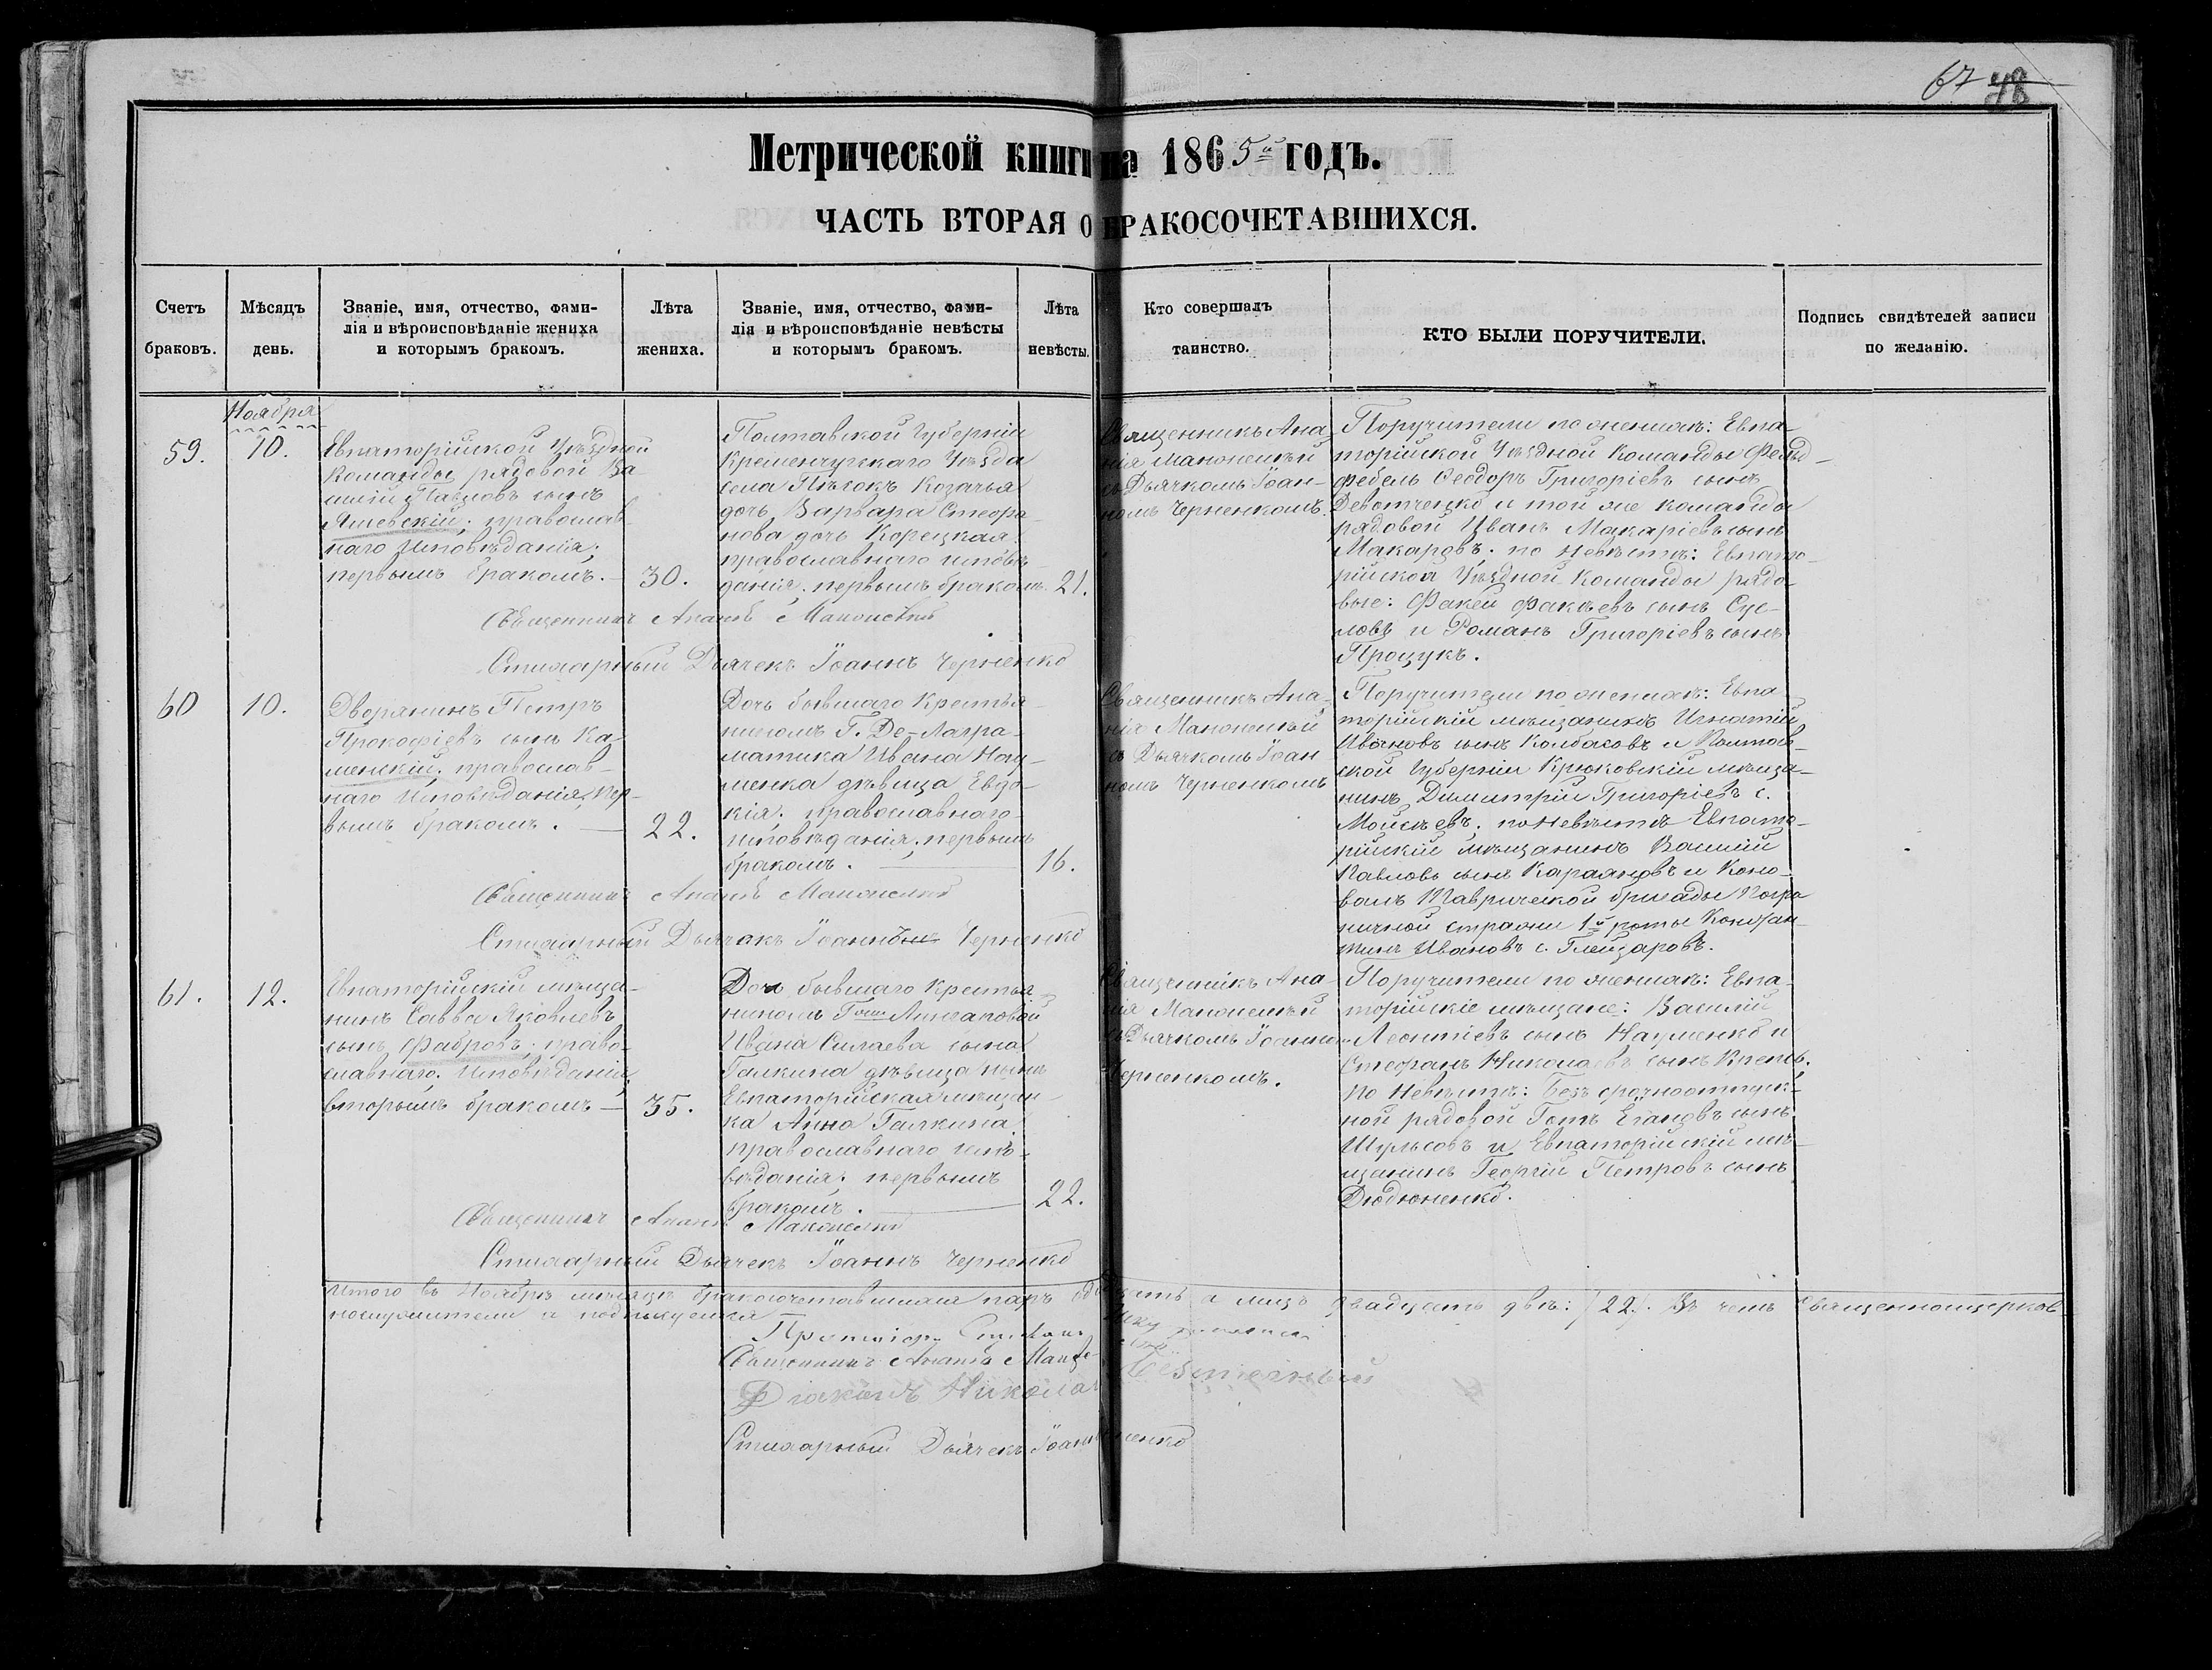 67 48
Метрической книги на 1865й годъ.
ЧАСТЬ ВТОРАЯ О БРАКОСОЧЕТАВШИХСЯ.
Счетъ браковъ.
Мѣсяцъ день.
Званіе, имя, отчество, фами-
лія и вѣроисповѣданіе жениха
и которымъ бракомъ.
Лѣта жениха.
Званіе, имя, отчество, фами-
лія и вѣроисповѣданіе невѣсты
и которымъ бракомъ.
Лѣта невѣсты.
Кто совершалъ
таинство.
КТО БЫЛИ ПОРУЧИТЕЛИ.
Подпись свидѣтелей записи
по желанію.
Ноября
59.
10.
Евпаторійской Уѣздной
Команды рядовой Ва-
силій Павловъ сынъ
православ-
наго исповѣданія;
первымъ бракомъ.
30.
Полтавской Губерніи
Кременчугскаго Уѣзда
села Пѣсокъ Козачья
дочь Варвара Стефа-
нова дочь Корецкая
православнаго исповѣ-
данія; первымъ бракомъ.
21.
Священникъ Ана-
нія
съ Дьячкомъ Іоан-
номъ Черненкомъ.
Поручители по женихѣ: Евпа-
торійской Уѣздной Команды Фельд-
фебель Ѳеодоръ Григоріевъ сынъ
и той же команды
рядовой Иванъ Макаріевъ сынъ
Макаровъ. по невѣстѣ: Евпато-
рійской Уѣздной Команды рядо-
вые: Факей Факѣевъ сынъ Сус-
ловъ и Романъ Григоріевъ сынъ
Процукъ.
Священникъ Ананія
Стихарный Дьячекъ Іоаннъ Черненко
60
10.
Дворянинъ Петръ
Прокофіевъ сынъ Ка-
менскій; православ-
наго исповѣданія, пер-
вымъ бракомъ.
22.
Дочь бывшаго крестья-
нина Г. Де-Лагра-
матика Ивана Ногу-
менка дѣвица Евдо-
кія; православнаго
исповѣданія; первымъ
бракомъ.
16.
Священникъ Ана-
нія
съ Дьячкомъ Іоан-
номъ Черненкомъ
Поручители по женихѣ: Евпа-
торійскій мѣщанинъ Игнатій
Ивановъ сынъ Колбасовъ и Полтав-
ской Губерніи Крюковскій мѣща-
нинъ Димитрій Григоріевъ с.
Мойсѣевъ. по невѣстѣ Евпато-
рійскій мѣщанинъ Василій
Павловъ сынъ Караяновъ и Коно-
валъ Таврической бригады Погра-
ничной стражи 1й роты Констан-
тинъ Ивановъ с.
Священникъ Ананія
Стихарный Дьячекъ Іоаннъ Черненко
61.
12.
Евпаторійскій мѣща-
нинъ Савва Яковлевъ
сынъ Фабровъ; право-
славнаго исповѣданія,
вторымъ бракомъ
35.
Дочь бывшаго крестья-
нина
Ивана Силаева сына
Галкина дѣвица нынѣ
Евпаторійская мѣщан-
ка Анна Галкина
православнаго испо-
вѣданія; первымъ
бракомъ.
22.
Священникъ Ана-
нія
съ Дьячкомъ Іоанномъ
Черненкомъ.
Поручители по женихѣ: Евпа-
торійскіе мѣщане: Василій
Леонтіевъ сынъ Науменко и
Стефанъ Николаевъ сынъ
По невѣстѣ: безсрочноотпуск-
ной рядовой сынъ
Шульсовъ и Евпаторійскій мѣ-
щанинъ Георгій Петровъ сынъ
Дюдюненко.
Священникъ Ананія
Стихарный Дьячекъ Іоаннъ Черненко
Итого въ Ноябрѣ мѣсяцѣ бракосочетавшихся паръ а лицъ двадцать двѣ: (22). Въ чемъ Священноцерков-
нослужители и подписуемся
Священникъ Ананія
Діаконъ Николай
Стихарный Дьячекъ Іоаннъ